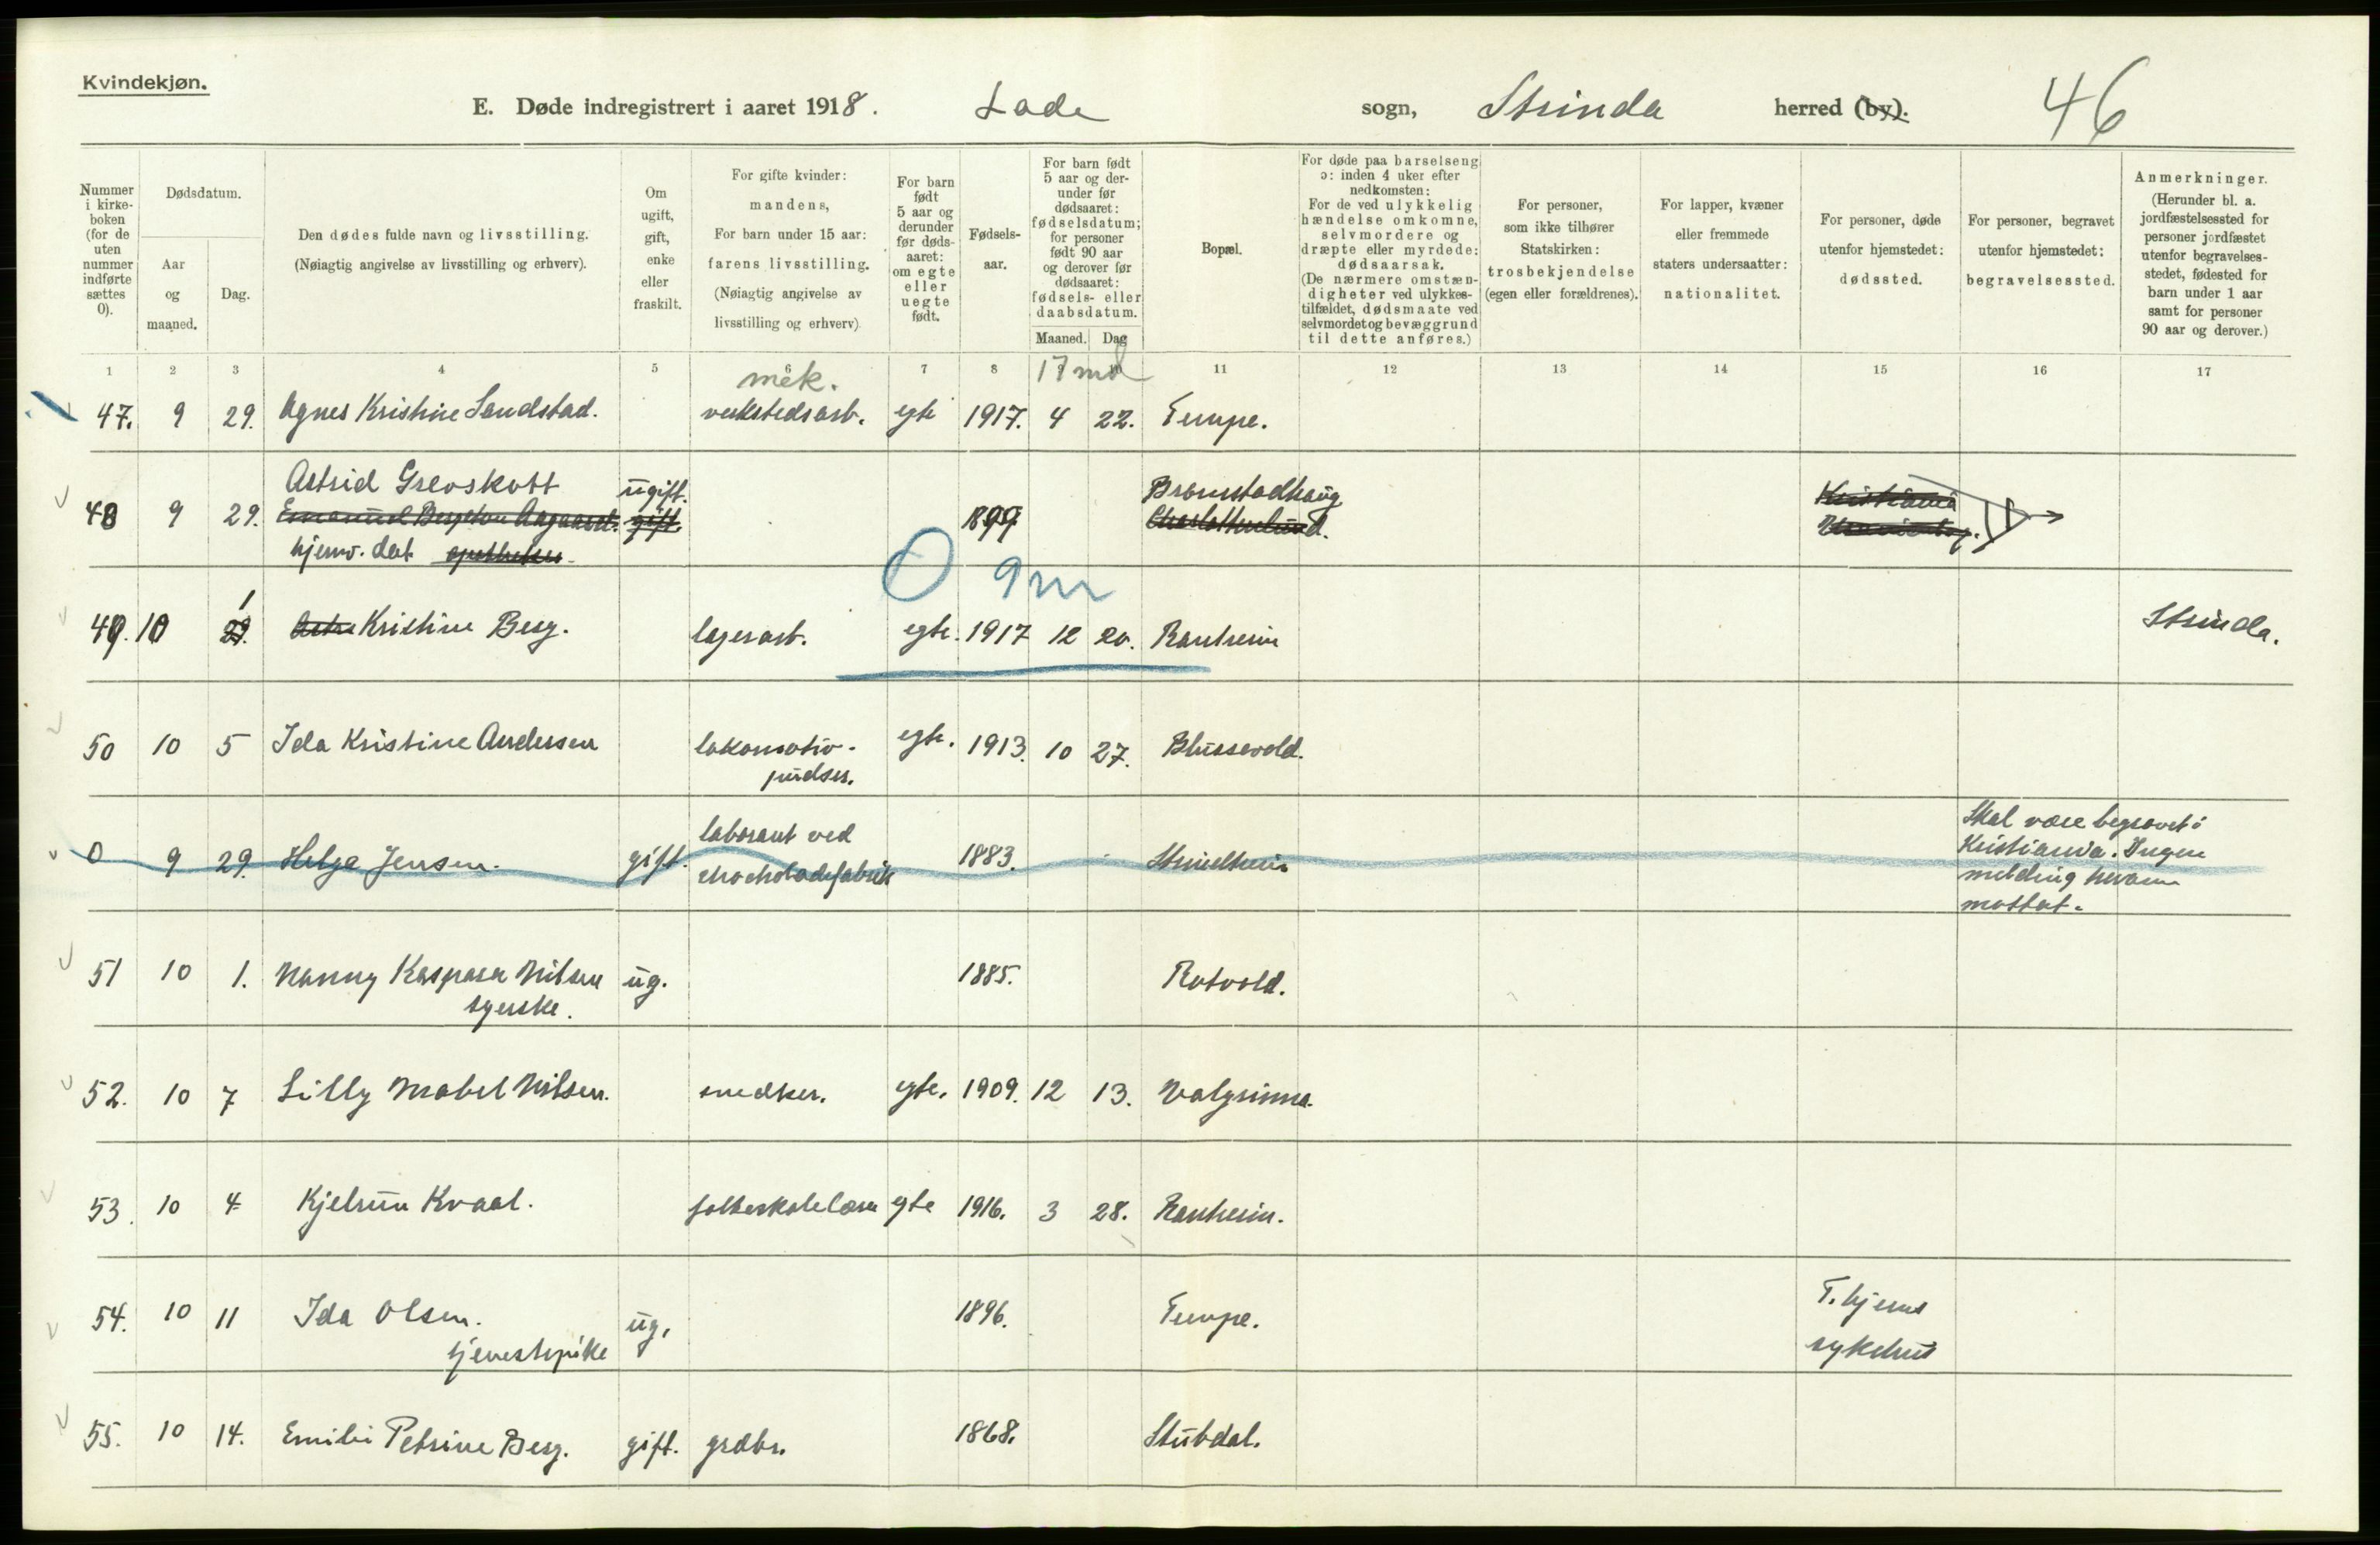 Kvindekjøn.
E. Døde indregistrert i aaret 1918. Lade sogn, Strinda herred (by). 46
Nummer i kirke-boken (for de uten nummer indførte sættes 0).
Dødsdatum.
Aar og maaned.
Dag.
Den dødes fulde navn og livsstilling.
(Nøiagtig angivelse av livsstilling og erhverv).
Om ugift, gift, enke eller fraskilt.
For gifte kvinder: mandens,
For barn under 15 aar: farens livsstilling.
(Nøiagtig angivelse av livsstilling og erhverv)
For barn født 5 aar og derunder før døds-aaret: om egte eller uegte født.
Fødsels-aar.
For barn født 5 aar og der-under før dødsaaret: fødselsdatum; for personer født 90 aar og derover før dødsaaret: fødsels- eller daabsdatum.
Maaned. Dag
Bopæl.
For døde paa barselseng ɔ: inden 4 uker efter nedkomsten:
For de ved ulykkelig hændelse omkomne, selvmordere og dræpte eller myrdede: dødsaarsak.
(De nærmere omstæn-digheter ved ulykkes-tilfældet, dødsmaate ved selvmordet og bevæggrund til dette anføres.)
For personer, som ikke tilhører Statskirken: trosbekjendelse (egen eller forældrenes).
For lapper, kvæner eller fremmede staters undersaatter: nationalitet.
For personer, døde utenfor hjemstedet: dødssted.
For personer, begravet utenfor hjemstedet: begravelsessted.
Anmerkninger.
(Herunder bl. a. jordfæstelsessted for personer jordfæstet utenfor begravelses-stedet, fødested for barn under 1 aar samt for personer 90 aar og derover.)
1 2 3 4 5 6 7 8 9 10 11 12 13 14 15 16 17
mek. 17 md
47. 9 29. Agnes Kristine Sandstad. verkstedsarb. egte 1917. 4 22. Tempe.
Astrid Grevskott ugift. Bromstadhaug Kristiania
48 9 29. Emanuel Bergithon Aagaard. gift. 1899 Charlottenlund.
hjemv. dat. apotheker
0 9 m
1
49. 10 29. Kristine Berg. lagerarb. egte. 1917 12 20. Ranheim Strinda.
50 10 5 Ida Kristine Andersen lokomotiv- egte. 1913. 10 27. Blussevold.
pudser.
0 9 29. Helga Jensen. gift. laborant ved 1883. Strindheim Skal være begravet i
chocholadefabrik Kristiania. Ingen
melding herom
mottat.
51 10 1. Nanny Kaspara Nilsen ug. 1885. Rotvold.
syerske.
52. 10 7 Lilly Mabel Nilsen. snedker. egte. 1909. 12 13. Valgrinna.
53. 10 4 Kjelrun Kvaal. folkeskolelærer egte 1916. 3 28. Ranheim.
54. 10 11 Ida Olsen. ug. 1896. Tempe. T. hjems
tjenestepike sykehus
55. 10 14. Emilie Petrine Berg. gift. grdbr. 1868. Stubdal.